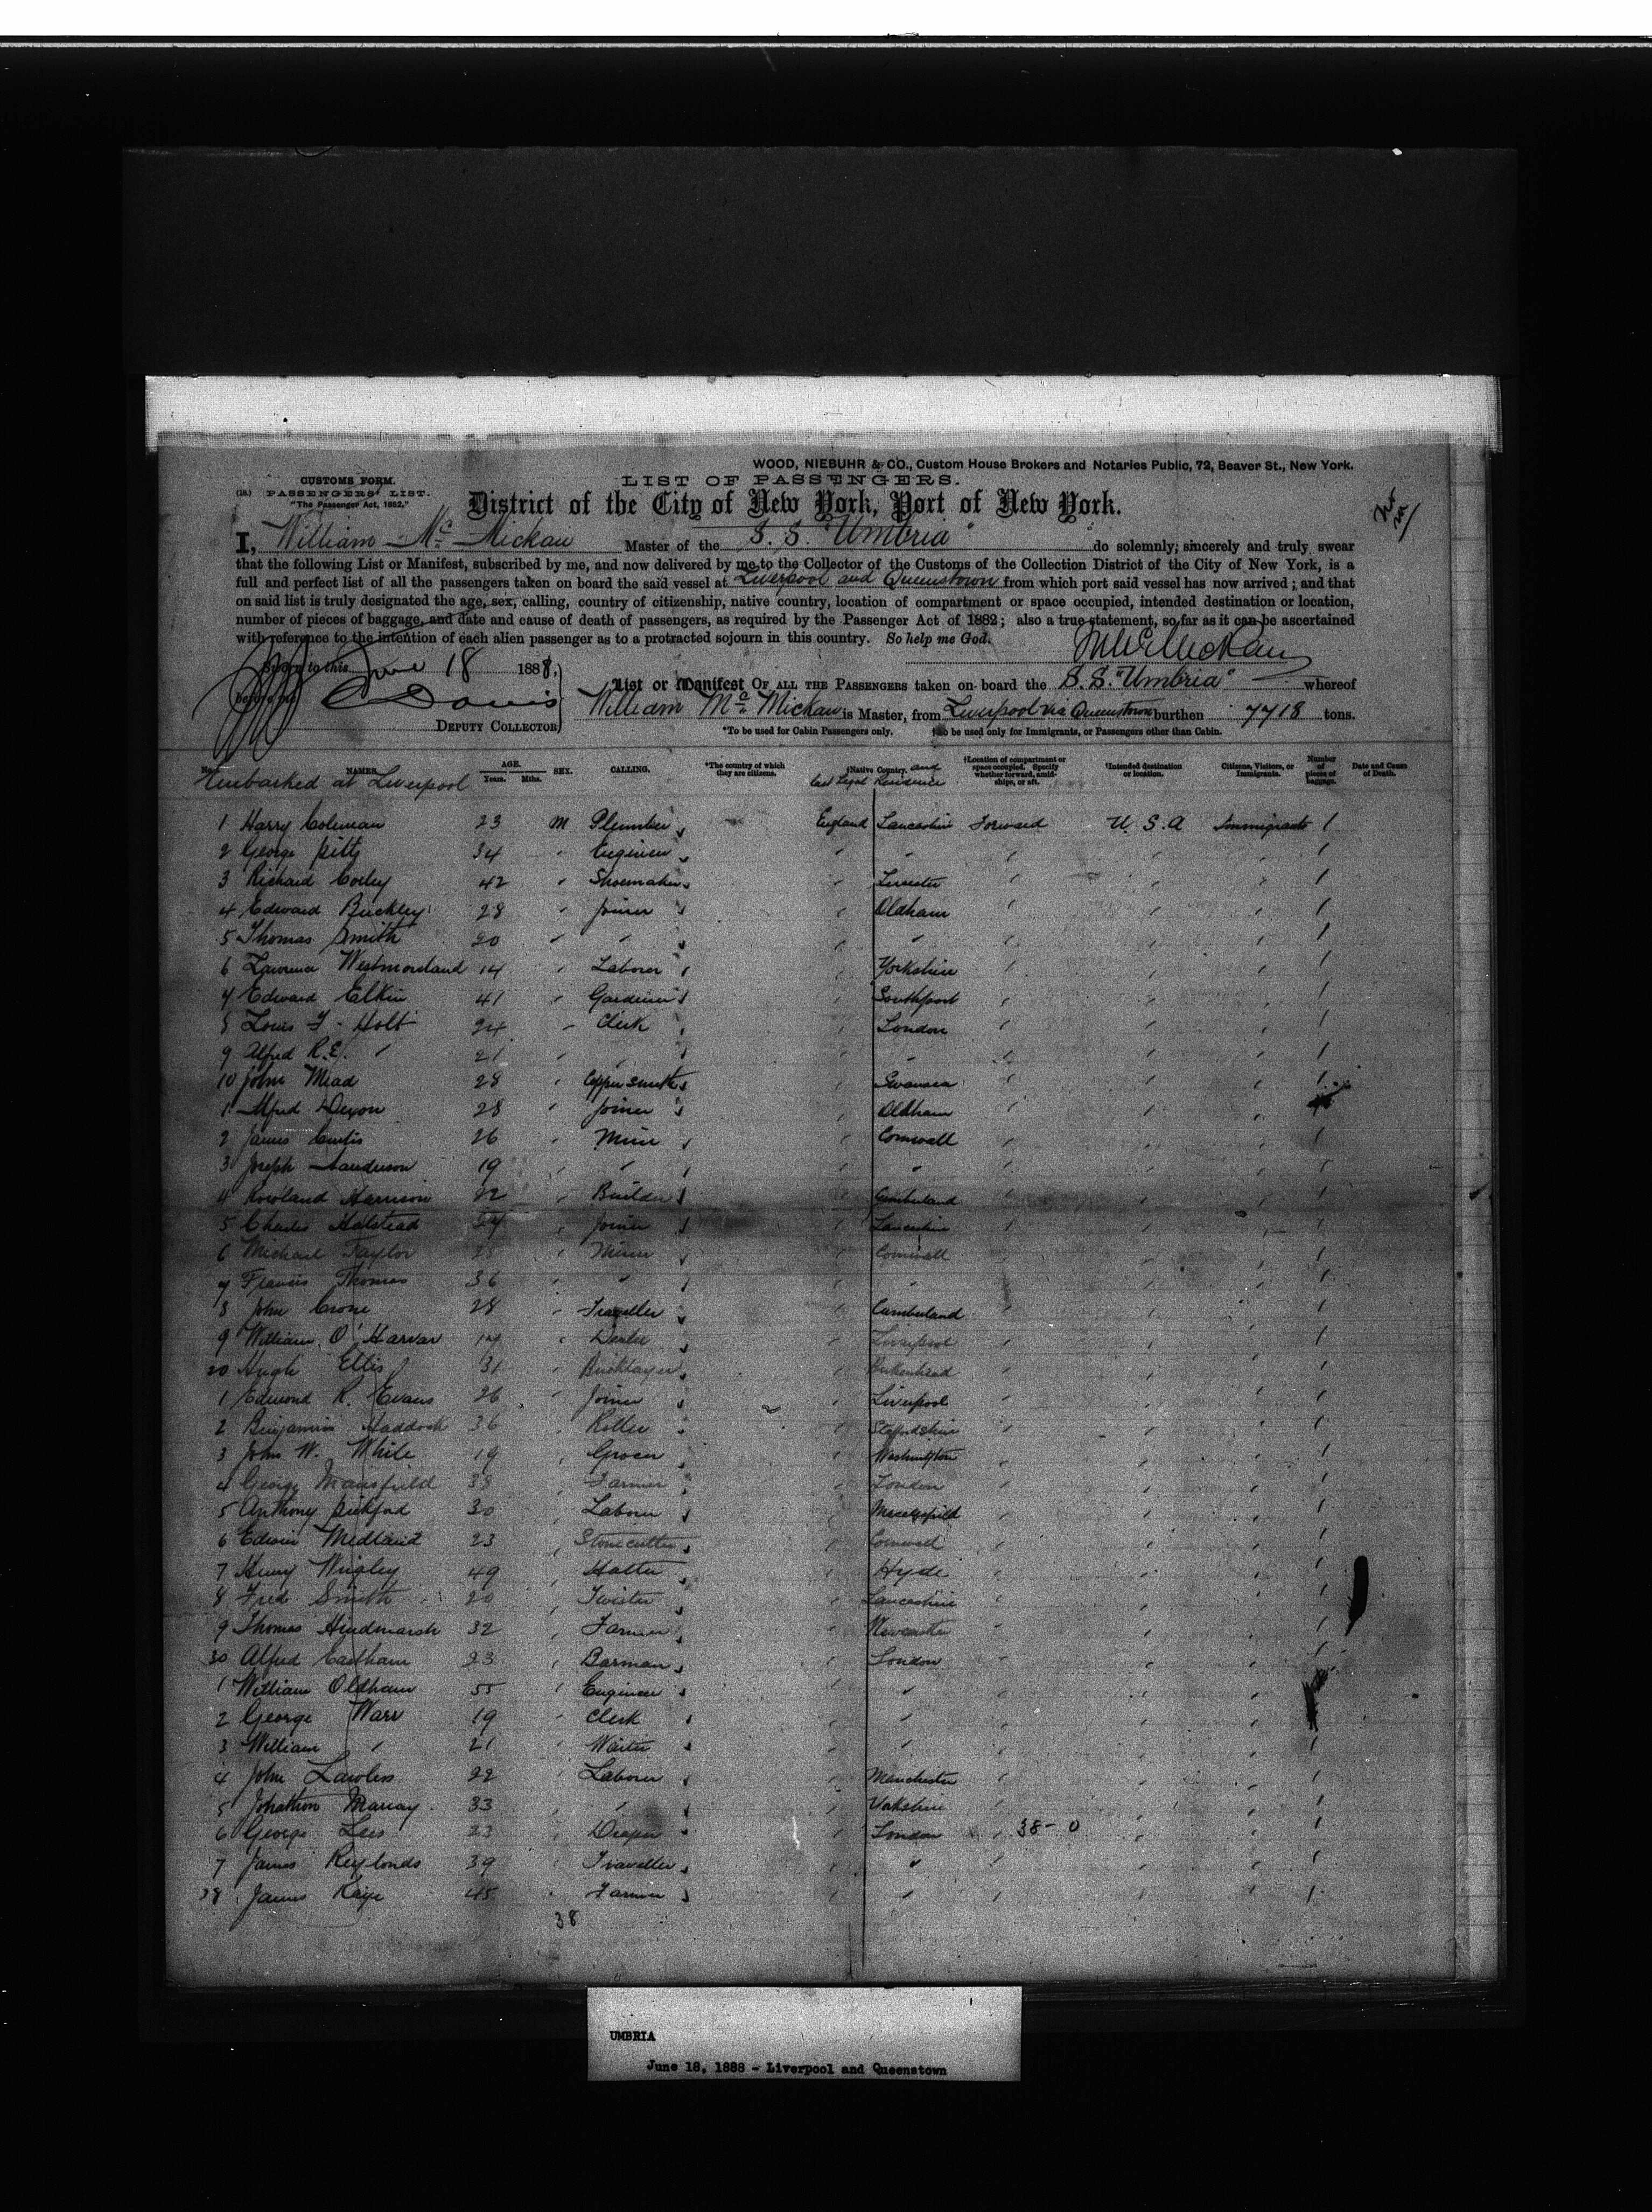 WOOD, NIEBUHR & CO., Custom House Brokers and Notaries Public, 72, Beaver St., New York.
CUSTOMS FORM.
LIST OF PASSENGERS.
(18.) PASSENGERS' LIST.
"The Passenger Act, 1882."
District of the City of New York, Port of New York.
I, William Mc Mickan Master of the S. S. "Umbria" do solemnly, sincerely and truly swear
that the following List or Manifest, subscribed by me, and now delivered by me to the Collector of the Customs of the Collection District of the City of New York, is a
full and perfect list of all the passengers taken on board the said vessel at Liverpool and Queenstown from which port said vessel has now arrived; and that
on said list is truly designated the age, sex, calling, country of citizenship, native country, location of compartment or space occupied, intended destination or location,
number of pieces of baggage, and date and cause of death of passengers, as required by the Passenger Act of 1882; also a true statement, so far as it can be ascertained
with reference to the intention of each alien passenger as to a protracted sojourn in this country. So help me God.
Sworn to this June 18 1888,
before me Davis
DEPUTY COLLECTOR
List or Manifest OF ALL THE PASSENGERS taken on board the S.S. "Umbria" whereof
William Mc Mickan is Master, from Liverpool via Queenstown burthen 7718 tons.
*To be used for Cabin Passengers only. †To be used only for Immigrants, or Passengers other than Cabin.
No. NAMES. AGE. Years. Mths. SEX. CALLING. *The country of which they are citizens. †Native Country. and last Legal Residence †Location of compartment or space occupied. Specify whether forward, amidships, or aft. †Intended destination or location. Citizens, Visitors, or Immigrants. Number of pieces of baggage. Date and Cause of Death.
Embarked at Liverpool
1 Harry Coleman 23 M Plumber England Lancashire Forward U. S. A Immigrants 1
2 George Pitty 34 " Engineer " " " " " 1
3 Richard 42 " Shoemaker " Leicester " " " 1
4 Edward Buckley 28 " Joiner " Oldham " " " 1
5 Thomas Smith 20 " " " " " " " 1
6 Lawrence Westmoreland 14 " Laborer " Yorkshire " " " 1
7 Edward Elkin 41 " Gardener " Southport " " " 1
8 Louis F. Holt 24 " Clerk " London " " " 1
9 Alfred R.E. " 21 " " " " " " " 1
10 John Mead 28 " Coppersmith " Swansea " " " 1
1 Alfred Dixon 28 " Joiner " Oldham " " "
2 James Curtis 26 " Miner " Cornwall " " " 1
3 Joseph Sanderson 19 " " " " " " " 1
4 Rowland Harrison 22 " Builder " Cumberland " " " 1
5 Charles Halstead " Joiner " Lancashire " " " 1
6 Michael Taylor 28 " Miner " Cornwall " " " 1
7 Francis Thomas 36 " " " " " " " 1
8 John Crone 28 " Traveller " Cumberland " " " 1
9 William O' " " Liverpool " " " 1
20 Hugh Ellis 31 " Bricklayer " Birkenhead " " " 1
1 Edmond R. Evans 26 " Joiner " Liverpool " " " 1
2 Benjamin Haddock 36 " Roller " Staffordshire " " " 1
3 John W. White 19 " Grocer " " " " 1
4 George Mansfield 38 " Farmer " London " " " 1
5 Anthony Pickford 30 " Laborer " Macclesfield " " " 1
6 Edwin Medland 23 " Stonecutter " Cornwall " " " 1
7 Henry Wrigley 49 " Hatter " Hyde " " " 1
8 Fred Smith 20 " Twister " Lancashire " " " 1
9 Thomas Hindmarsh 32 " Farmer " Newcastle " " " 1
30 Alfred Eastham 23 " Barman " London " " " 1
1 William Oldham 55 " Engineer " " " " "
2 George Warr 19 " Clerk " " " " "
3 William " 21 " Waiter " " " " " 1
4 John Lawless 22 " Laborer " Manchester " " " 1
5 Johathon Marcay 33 " " " Yorkshire " " " 1
6 George Lees 23 " Draper " London " 38 - 0 " " 1
7 James Reylonds 39 " Traveller " " " " " 1
38 James Kaye 45 " Farmer " " " " " 1
38
UMBRIA
June 18, 1888 - Liverpool and Queenstown